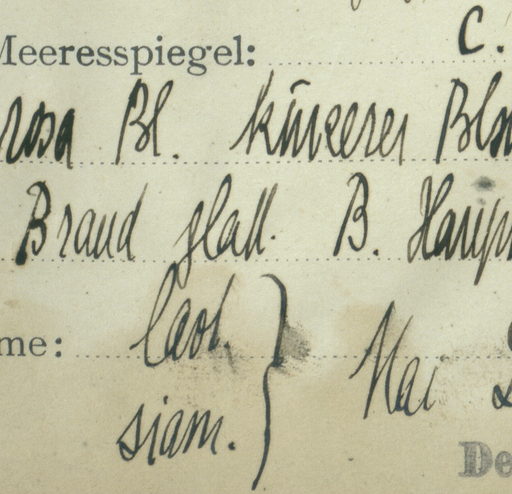 Meeresspiegel: c.
rosa Bl. kürzerer
Brand glatt. B.
Laot.
me: } Mai
siam.
De